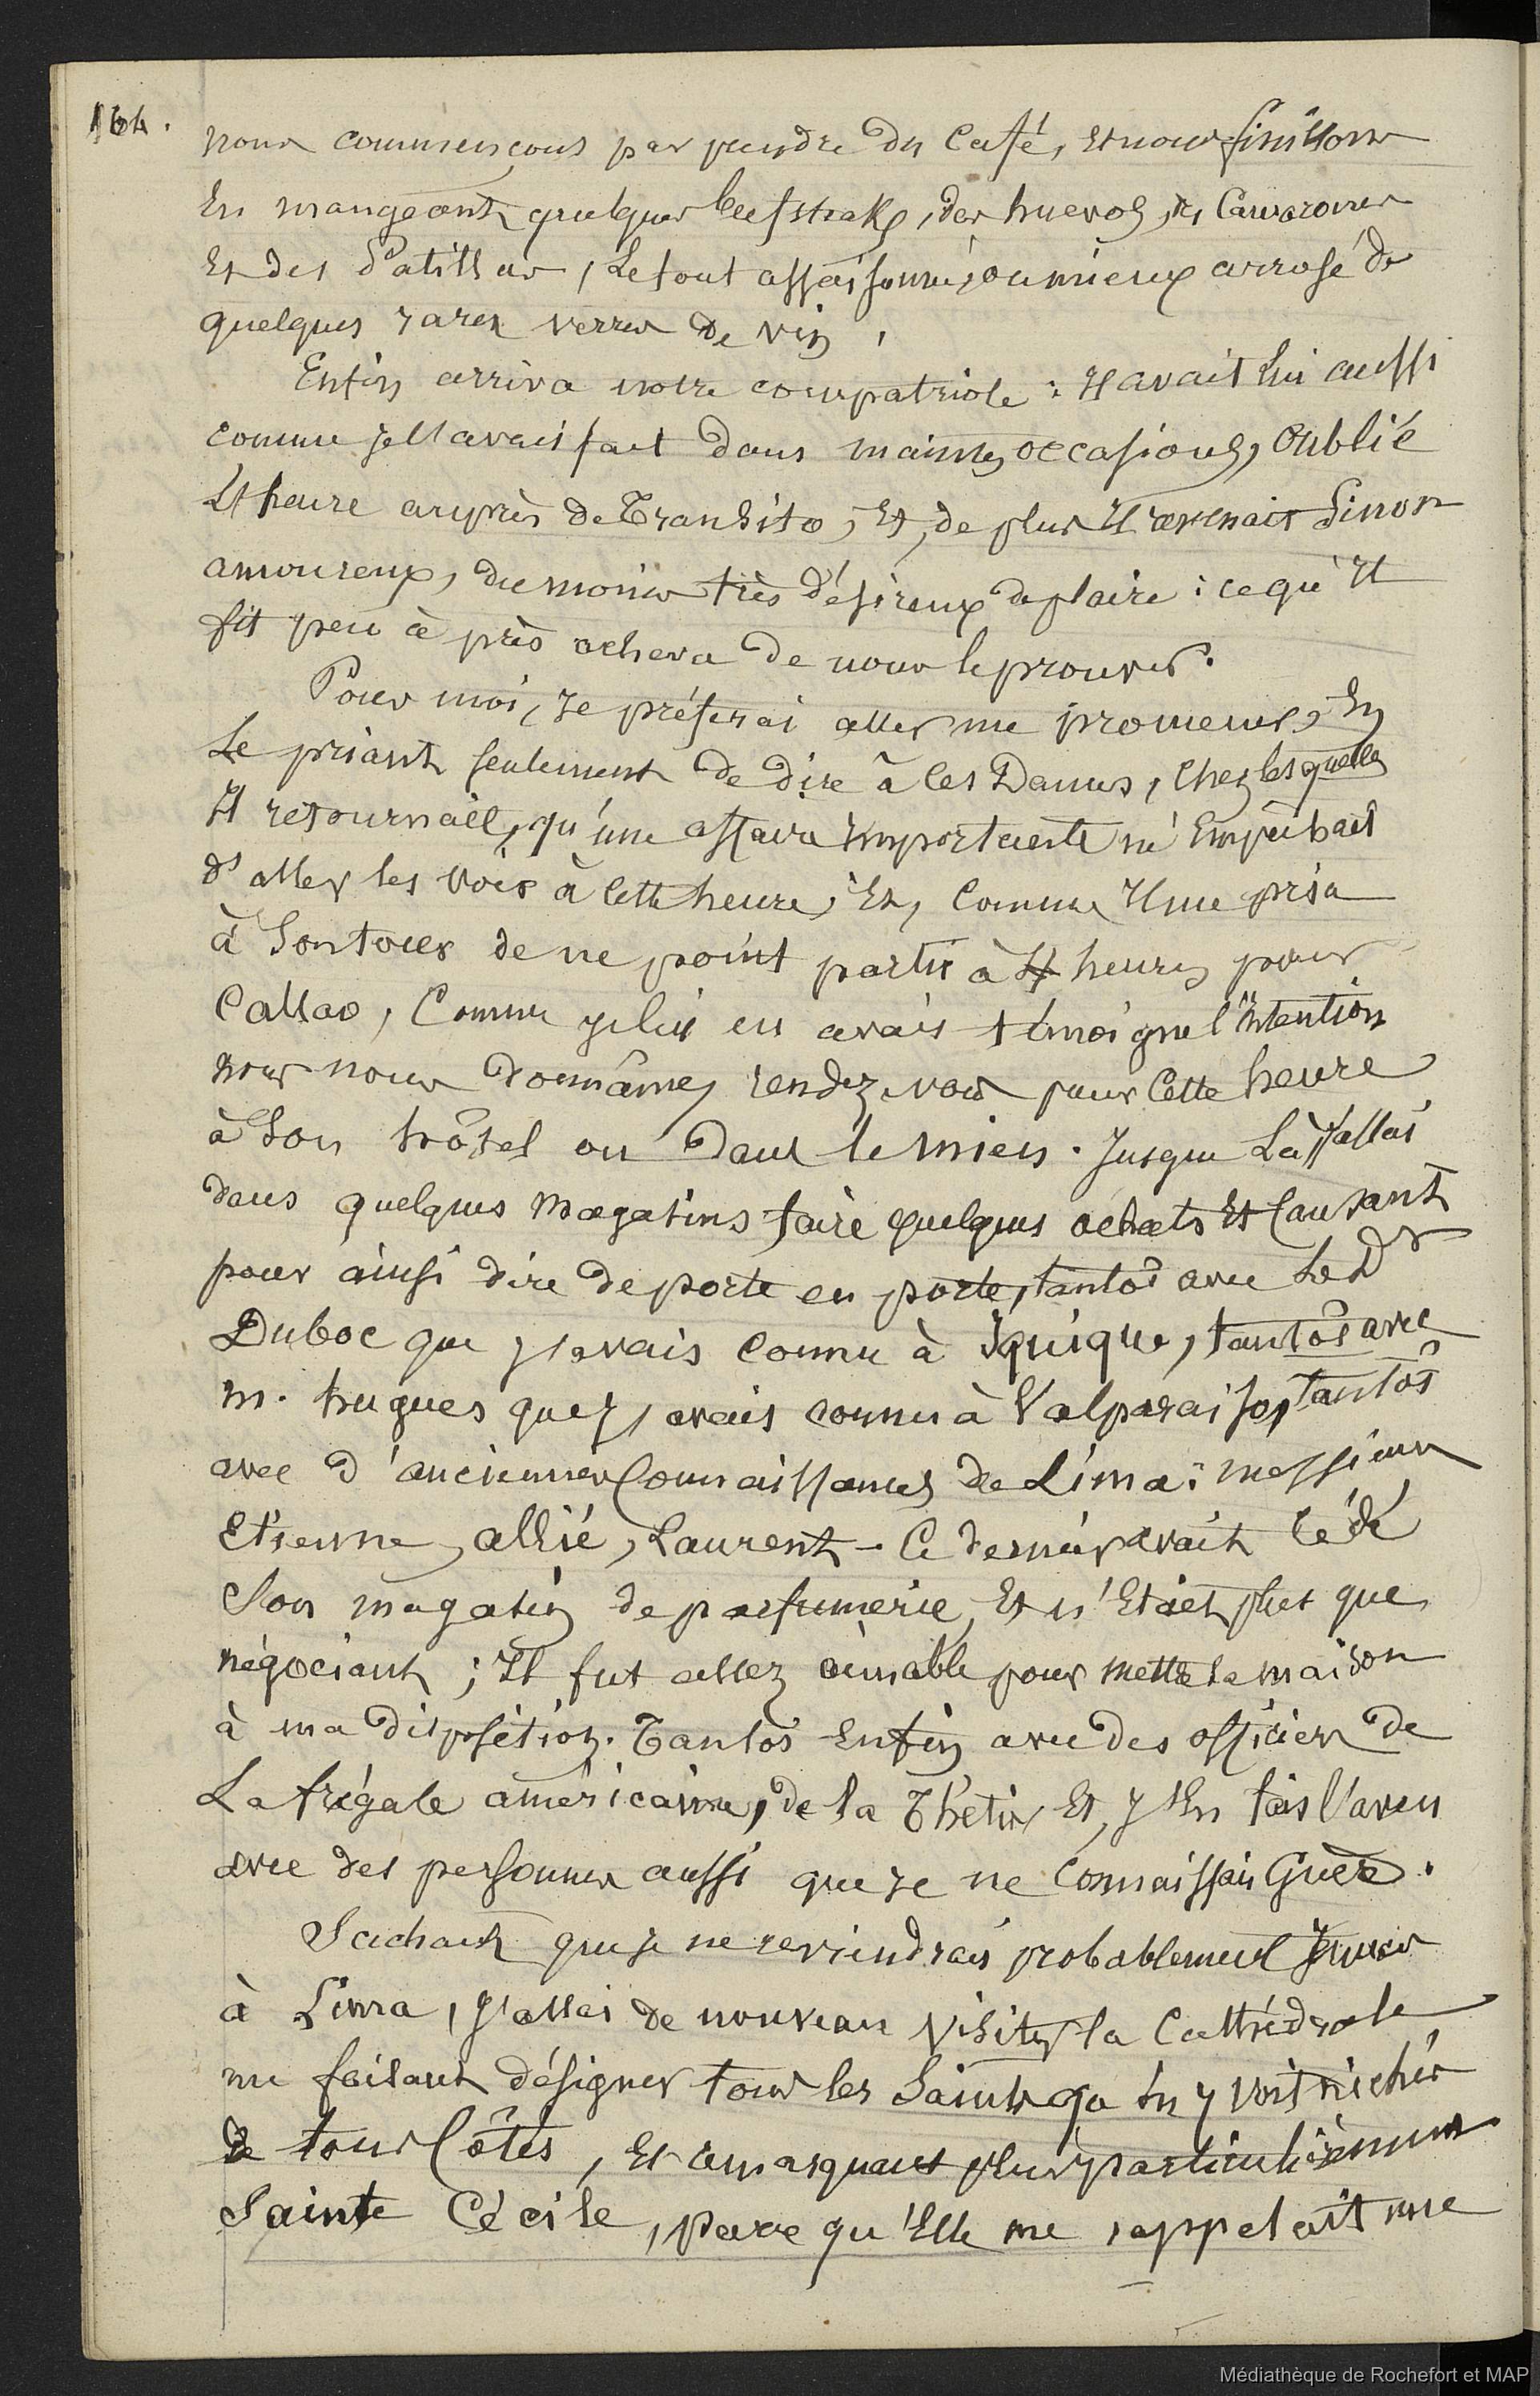 164.
nous commençons par prendre du Café, Et nous finissons
En mangeant quelques beefsteaks, des huevos, des Camarones
Et des Patillas, Le tout assaisonné, ou mieux arrosé de
quelques rares verres de vin,
Enfin arriva notre compatriote : Il avait lui aussi
comme je l'avais fait dans maintes occasions, Oublié
L'heure auprès de Transito, Et, de plus Il revenait Sinon
amoureux, du moins très désireux de plaire : ce qu'Il
fit peu à près acheva de nous le prouver.
Pour moi, Je préférai aller me promener, En
Le priant seulement de dire à ces Dames, Chez lesquelles
Il retournait, qu'une affaire Importante m'Empêchait
d'aller les voir à Cette heure, Et, Comme Il me pria
à Son tour de ne point partir à 4 heures pour
Callao, Comme je lui en avais témoigné l'Intention
nous nous donnâmes rendez vous pour Cette heure
à Son hôtel ou Dans le mien. Jusque Là J'allai
dans quelques Magasins faire quelques achats Et Causant
pour ainsi dire de porte en porte, tantôt avec Le Dr
Duboc que j'avais Connu à Iquique, tantôt avec
M. hugues que j'avais connu à Valparaiso, tantôt
avec d'anciennes Connaissances de Lima : Messieurs
Etienne, allié, Laurent - Ce dernier avait Cédé
Son magasin de parfumerie, Et n'Etait plus que
négociant ; Il fut assez aimable pour mettre sa maison
à ma disposition. Tantôt Enfin avec des officiers de
La frégate américaine, de la Thétis Et, j'En fais l'aveu
avec des personnes aussi que Je ne Connaissais Guère.
Sachant que je ne reviendrais probablement Jamais
à Lima, j'allai de nouveau Visiter la Cathédrale
me faisant désigner tous les Saints qu'on y voit nichés
de tous Côtés, Et remarquant plus particulièrement
Sainte Cécile, parce qu'Elle me rappelait une
Médiathèque de Rochefort et MAP